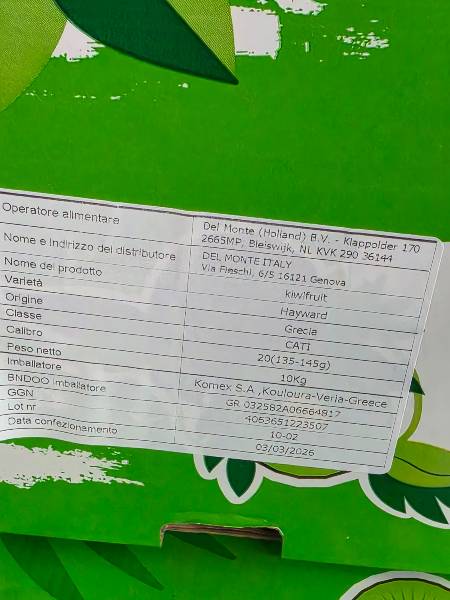 Operatore alimentare
Del Monte (Holland) B.V. - Klappolder 170
2665MP, Bleiswijk, NL KVK 290 36144
Nome e indirizzo del distributore
DEL MONTE ITALY
Via Fieschi, 6/5 16121 Genova
Nome del prodotto
kiwifruit
Varietà
Hayward
Origine
Grecia
Classe
CATI
Calibro
20(135-145g)
Peso netto
10Kg
Imballatore
Komex S.A.,Kouloura-Veria-Greece
BNDOO imballatore
GR 032582A06664817
GGN
4063651223507
Lot nr
10-02
Data confezionamento
03/03/2026